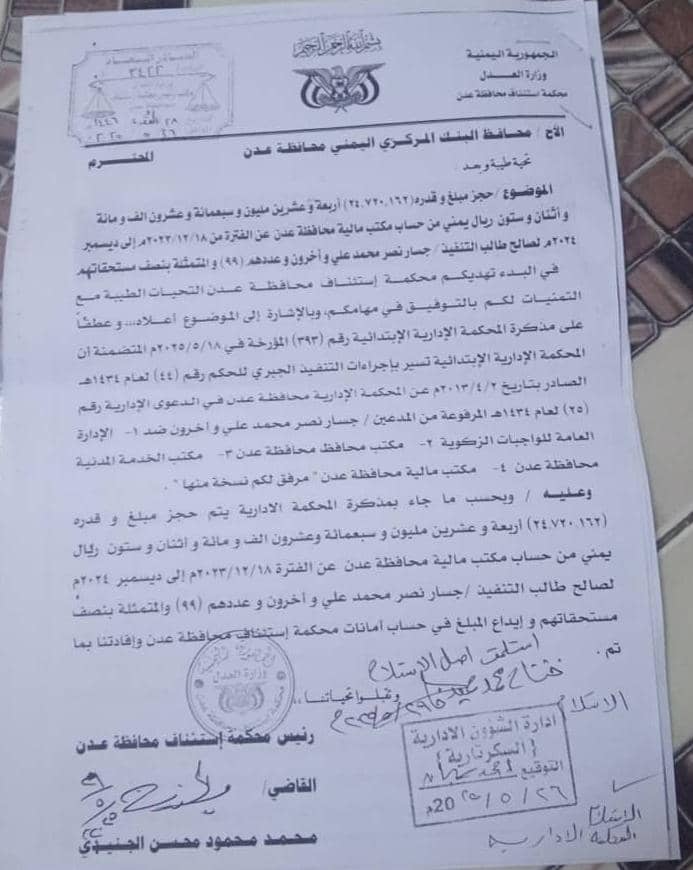 بسم الله الرحمن الرحيم
الجمهورية اليمنية
وزارة العدل
محكمة استئناف محافظة عدن
٣٤٢٢
الأخ / محافظ البنك المركزي اليمني محافظة عدن المحترم
تحية طيبة وبعد
الموضوع / حجز مبلغ و قدره (٢٤.٧٢٠.١٦٢) أربعة و عشرين مليون و سبعمائة و عشرون الف و مائة
و أثنان و ستون ريال يمني من حساب مكتب مالية محافظة عدن عن الفترة من ٢٠٢٣/١٢/١٨م إلى ديسمبر
٢٠٢٤م لصالح طالب التنفيذ / جسار نصر محمد علي و أخرون و عددهم (٩٩) و المتمثلة بنصف مستحقاتهم
في البدء تهديكم محكمة إستئناف محافظة عدن التحيات الطيبة مع
التمنيات لكم بالتوفيق في مهامكم، وبالإشارة إلى الموضوع أعلاه... و عطفاً
على مذكرة المحكمة الإدارية الإبتدائية رقم (٣٩٣) المؤرخة في ٢٠٢٥/٥/١٨م المتضمنة أن
المحكمة الإدارية الإبتدائية تسير بإجراءات التنفيذ الجبري للحكم رقم (٤٤) لعام ١٤٣٤هـ
الصادر بتاريخ ٢٠١٣/٤/٢م عن المحكمة الإدارية محافظة عدن في الدعوى الإدارية رقم
(٢٥) لعام ١٤٣٤هـ المرفوعة من المدعين / جسار نصر محمد علي و أخرون ضد ١- الإدارة
العامة للواجبات الزكوية ٢- مكتب محافظ محافظة عدن ٣- مكتب الخدمة المدنية
محافظة عدن ٤- مكتب مالية محافظة عدن " مرفق لكم نسخة منها " .
وعليه / وبحسب ما جاء بمذكرة المحكمة الادارية يتم حجز مبلغ و قدره
(٢٤.٧٢٠.١٦٢) أربعة و عشرين مليون و سبعمائة وعشرون الف و مائة و أثنان و ستون ريال
يمني من حساب مكتب مالية محافظة عدن عن الفترة ٢٠٢٣/١٢/١٨م إلى ديسمبر ٢٠٢٤م
لصالح طالب التنفيذ /جسار نصر محمد علي و أخرون و عددهم (٩٩) والمتمثلة بنصف
مستحقاتهم و إيداع المبلغ في حساب أمانات محكمة إستئناف محافظة عدن وإفادتنا بما
تم .
استلمت اصل الاستلام
وتقبلوا تحياتنا،،،
الاستلام
وزارة العدل
إدارة الشؤون الادارية
{السكرتارية}
التوقيع
٢٦/٥/٢٠٢٥م
رئيس محكمة إستئناف محافظة عدن
القاضي/
محمد محمود محسن الجنيدي
الادارية